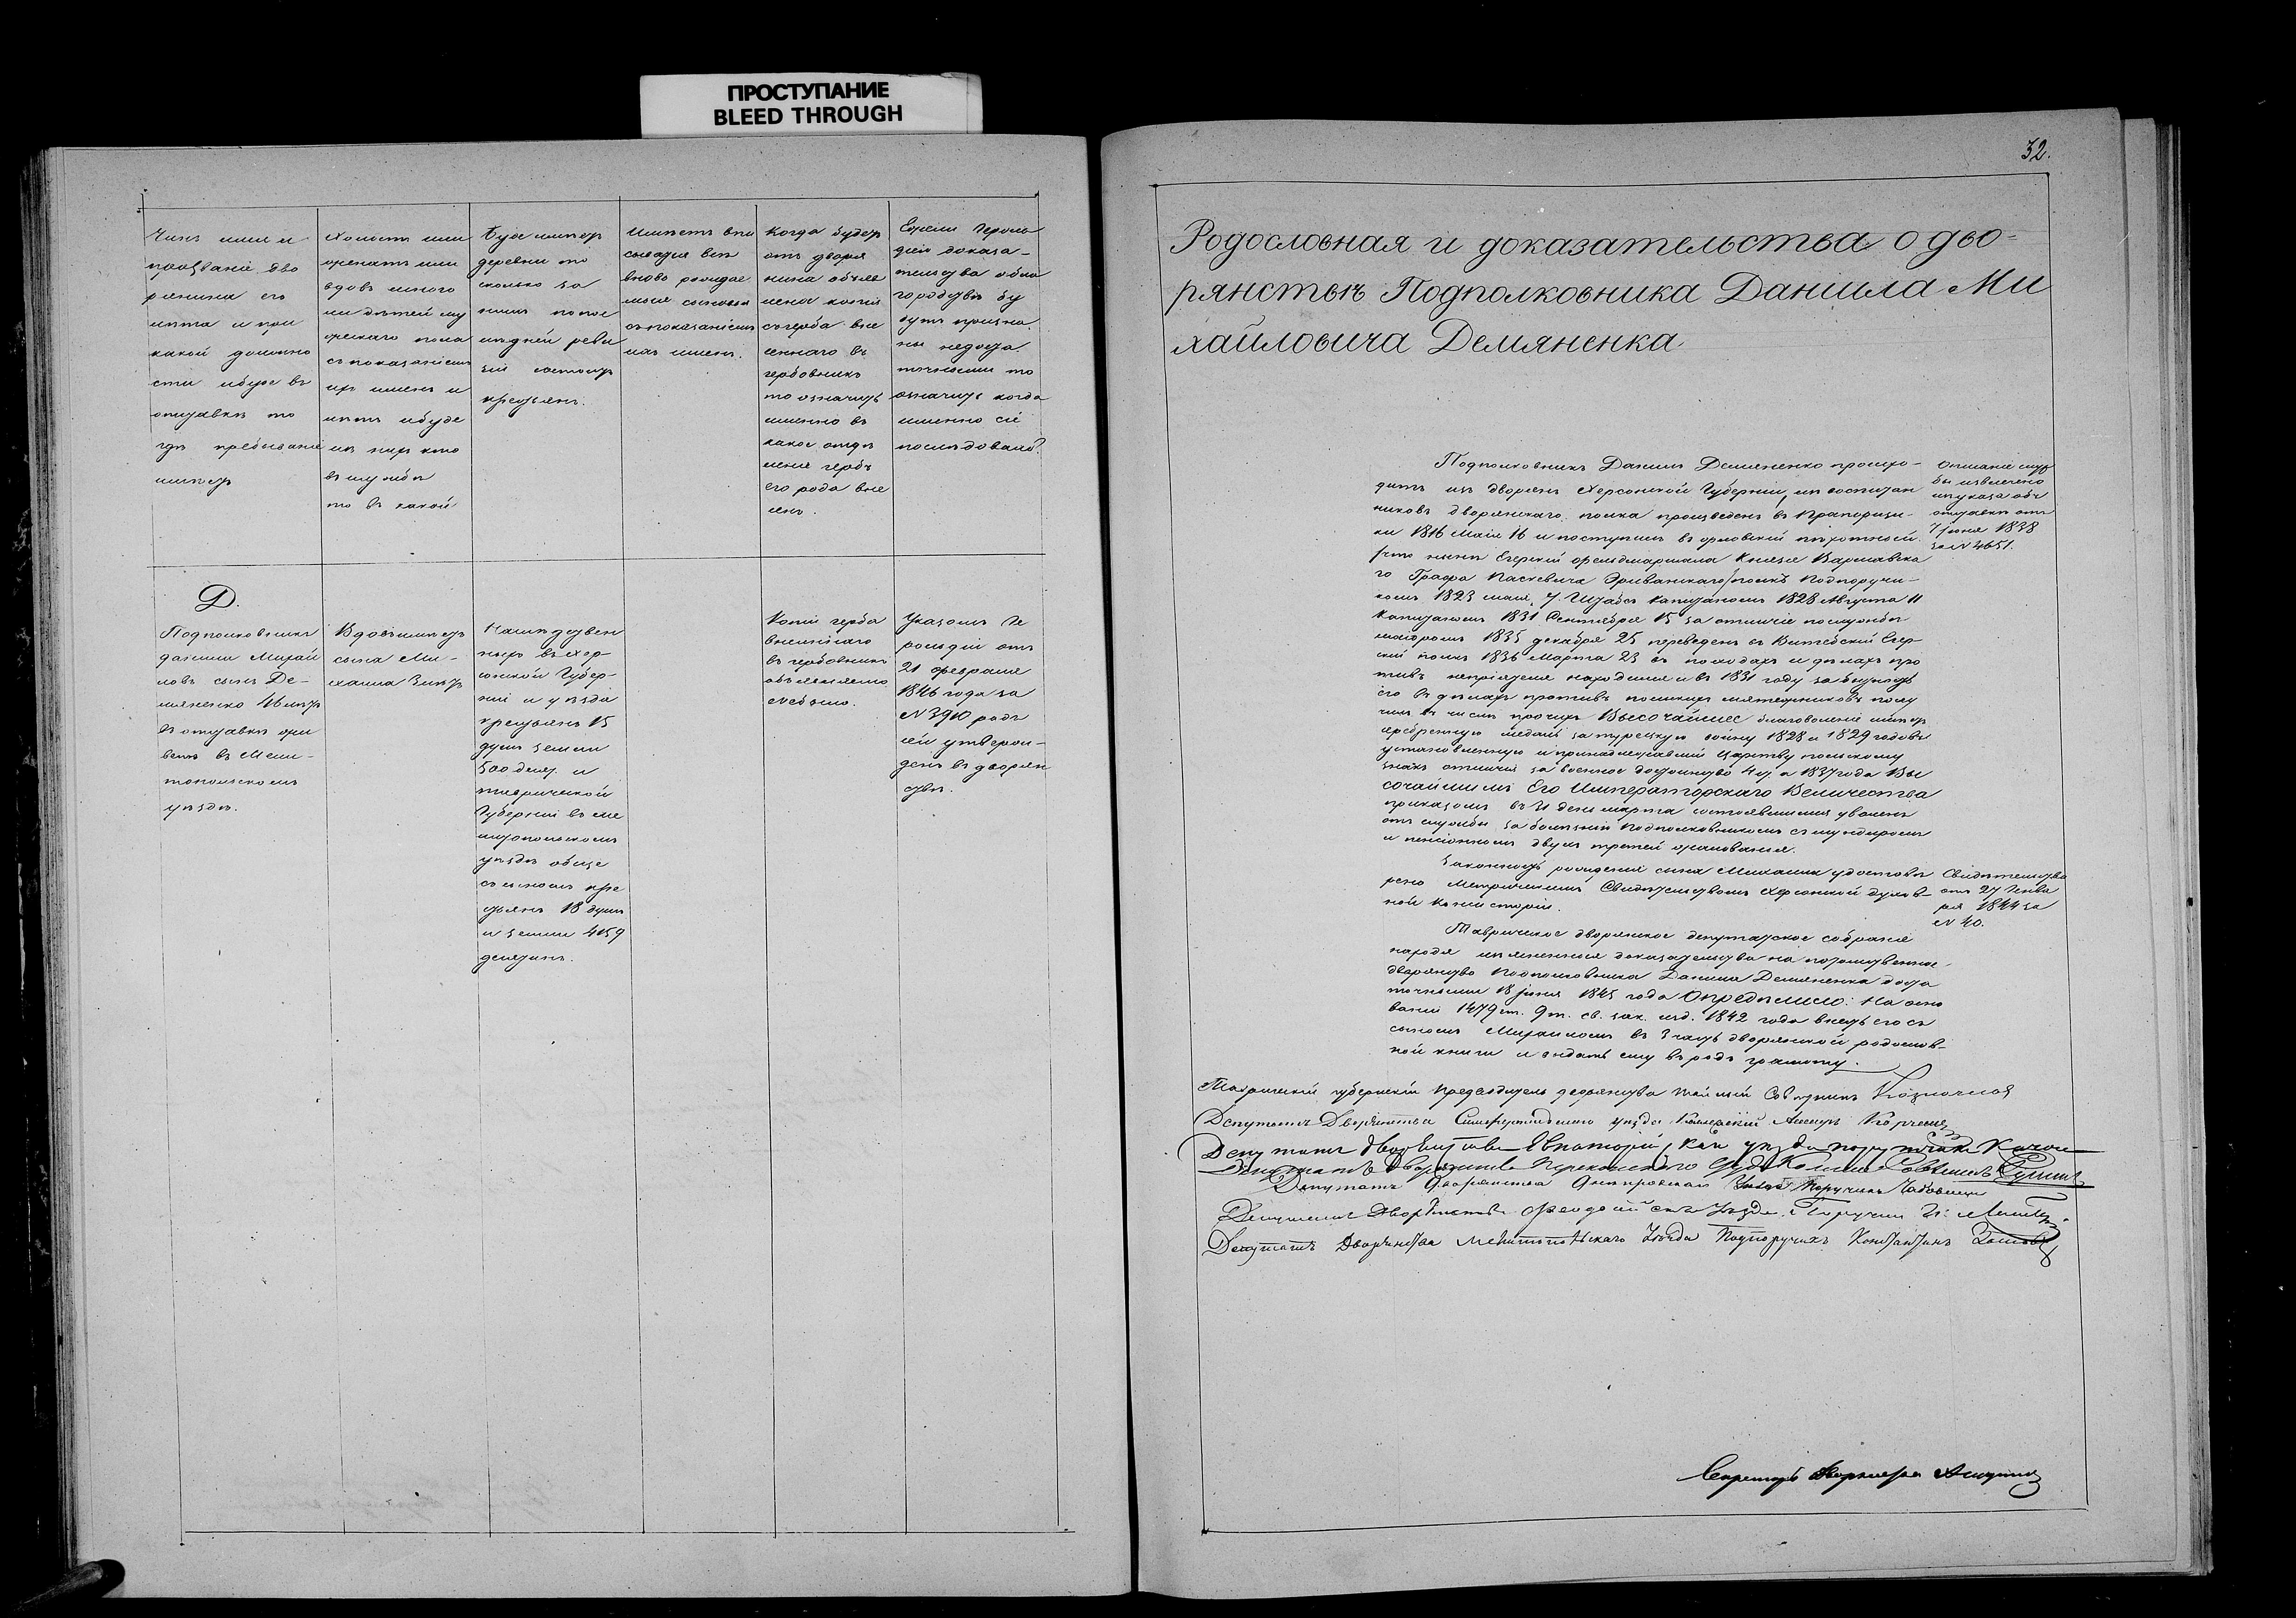 ПРОСТУПАНИЕ
BLEED THROUGH
Чинъ имя и
прозваніе дво
рянина его
лѣта и при
какой должно
сти ибуде въ
отставкѣ то
гдѣ пребываніе
имѣетъ
Холостъ или
женатъ или
вдовъ много
ли дѣтей му
жескаго пола
съ показаніемъ
ихъ именъ и
лѣтъ ибуде
изъ нихъ кто
въ службѣ
то въ какой
Буде имѣетъ
деревни то
сколько за
нимъ по пос
лѣдней реви
зіи состоитъ
крестьянъ.
вновь рождае
мые сыновья
съ показаніемъ
ихъ именъ.
Когда будетъ
отъ дворя
нина объяв
лена копія
съ герба вне
сеннаго въ
гербовникъ
то означить
именно въ
какое отдѣ
леніе гербъ
его рода вне
сенъ.
Ежели Героль
діей доказа-
тельства обла
городствѣ бу
дутъ призна
ны недоста
точными то
означить когда
именно сіе
послѣдовало?
Д.
Подполковникъ
Даніилъ Михай
ловъ сынъ Де-
мяненко 46 лѣтъ
въ отставкѣ жи
ветъ въ Мели-
топольскомъ
уѣздѣ.
Вдовъ имѣетъ
сына Ми-
хаила 3 лѣтъ
Наслѣдствен
ныхъ въ Хер-
сонской Губер-
ніи и уѣздѣ
крестьянъ 15
душъ земли
500 десят. и
Таврической
Губерніи въ Ме
литопольскомъ
уѣздѣ обще
съ сыномъ кре
стьянъ 18 душъ
и земли 4159
десятинъ.
Копіи герба
внесеннаго
въ гербовникъ
объявляемо
небыло.
Указомъ Ге
рольдіи отъ
21 февраля
1846 года за
№ 3910 родъ
сей утверж-
денъ въ дворян
ствѣ.
32.
Родословная и доказательства о дво-
рянствѣ Подполковника Даніила Ми
хайловича Демяненка
Подполковникъ Даніилъ Демяненко происхо-
дитъ изъ дворянъ Херсонской Губерніи, изъ воспитан
никовъ дворянскаго полка произведенъ въ Прапорщи-
ки 1816 Маія 16 и поступилъ въ Орловскій пѣхотный
/что нынѣ Егерскій фельдмаршала Князя Варшавска
го Графа Паскевича Эриванскаго/ полкъ Подпоручи-
комъ 1823 маія 7 Штабсъ Капитаномъ 1828 Августа 11
Капитаномъ 1831 Сентября 15 за отличіе по службѣ
маіоромъ 1835 декабря 25 переведенъ въ Витебскій Егер-
скій полкъ 1836 Марта 23 въ походахъ и дѣлахъ про
тивъ непріятеля находился и въ 1831 году за бытность
его въ дѣлахъ противъ польскихъ мятежниковъ полу
чилъ въ числѣ прочихъ Высочайшее благоволеніе имѣетъ
серебренную медаль за турецкую войну 1828 и 1829 годовъ
установленную и принадлежавшій Царству польскому
знакъ отличія за военное достоинство 4 ст. а 1837 года Вы
сочайшимъ Его Императорскаго Величества
приказомъ въ 21 день марта состоявшимся уволенъ
отъ службы за болѣзнію Подполковникомъ съ мундиромъ
и пенсіономъ двухъ третей жалованья.
Законность рожденія сына Михаила удостовѣ
рено Метрическимъ Свидѣтельствомъ Херсонской духов-
ной Консисторіи.
Таврическое дворянское депутатское собраніе
находя изъясненныя доказательства на потомственное
дворянство Подполковника Даніила Демяненка доста
точными 18 Іюня 1845 года Опредѣлило: На осно
ваніи 1479 ст. 9 т. св. зак. изд. 1842 года внесть его съ
сыномъ Михаиломъ въ 3 часть дворянской родослов-
ной книги и выдать ему въ родъ грамоту.
Описаніе служ
бы извлечено
изъ указа объ
отставкѣ отъ
7 Іюня 1838
за № 4651.
Свидѣтельство
отъ 27 Генва
ря 1844 за
№ 40.
Таврическій губернскій Предводитель дворянства Казначеевъ
Депутатъ Дворянства Симферопольскаго уѣзда Коллежскій
Депутатъ Дворянства Евпаторійскаго уѣзда поручикъ
Депутатъ Дворянства Перекопскаго
Депутатъ Дворянства Днѣпровскаго Уѣзда Поручикъ
Депутатъ Дворянства Феодосійскаго Уѣзда Поручикъ
Депутатъ Дворянства Мелитопольскаго Уѣзда Подпоручикъ Константинъ
Секретарь Дворянства